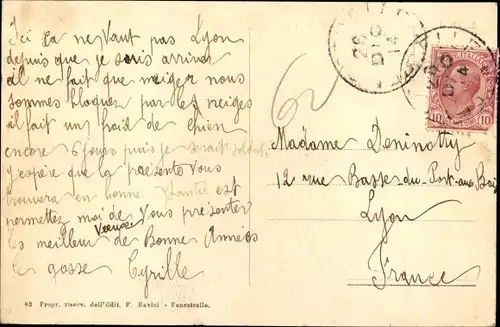 Ici ça ne Vaut pas Lyon
depuis que je suis arriver
il ne fait que neiger nous
sommes bloquer par les neiges
il fait un froid de chien
encore 6 jours puis je serait soldat
J'espère que la présente Vous
trouvera en bonne Santé et
permettez moi de Vous présenter
les meilleur Voeux de Bonne Années
le gosse Cyrille
62
Madame Deninotty
12 rue Basse du Port aux Bois
Lyon
France
29 DIC 14
10 10
62 Propr. riserv. dell'Edit. F. Raviol - Fenestrelle.